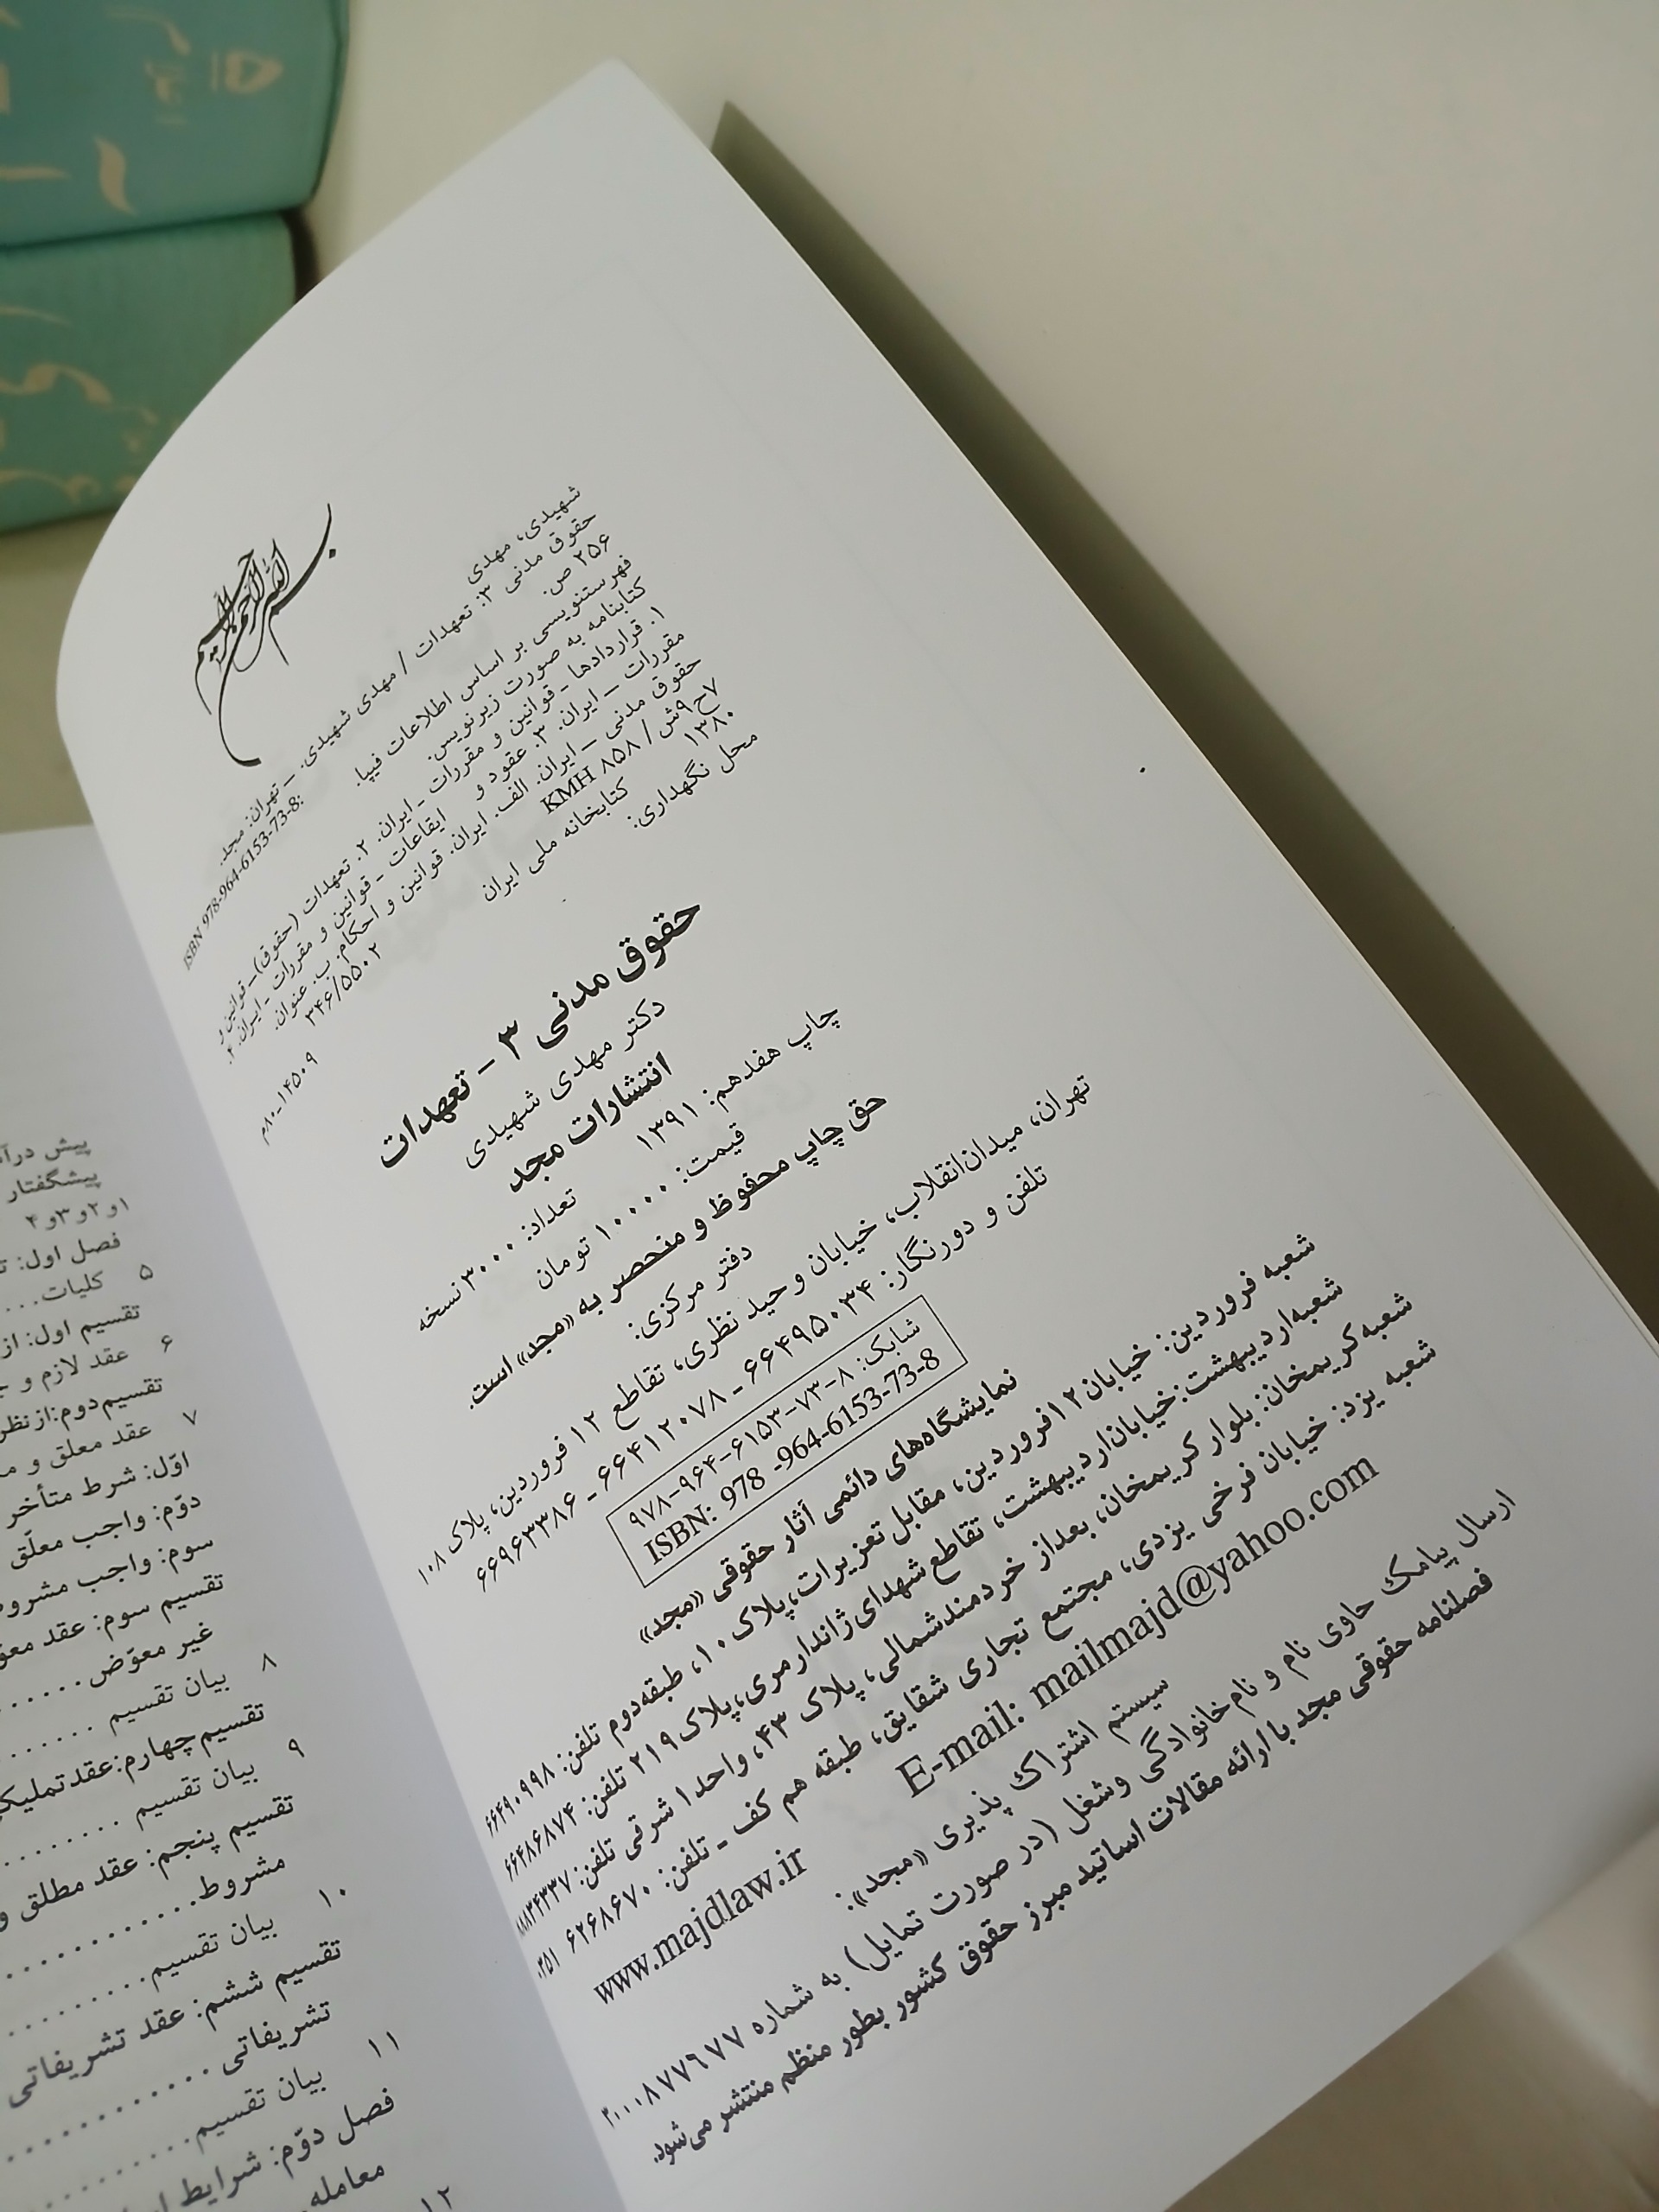 بسم الله الرحمن الرحیم
شهیدی، مهدی
حقوق مدنی ۳: تعهدات / مهدی شهیدی. ـ تهران: مجد.
۲۵۶ ص.
ISBN 978-964-6153-73-8:
فهرستنویسی بر اساس اطلاعات فیپا.
کتابنامه به صورت زیرنویس.
۱. قراردادها ـ قوانین و مقررات ـ ایران. ۲. تعهدات (حقوق) ـ قوانین و
مقررات ـ ایران. ۳. عقود و ایقاعات ـ قوانین و مقررات ـ ایران. ۴.
حقوق مدنی ـ ایران. الف. ایران. قوانین و احکام. ب. عنوان.
۷ح۹ش / KMH ۸۵۸ ۳۴۶/۵۵۰۲
۱۳۸۰
کتابخانه ملی ایران ۱۴۵۰۹-۸۰م
محل نگهداری:
حقوق مدنی ۳ - تعهدات
دکتر مهدی شهیدی
انتشارات مجد
چاپ هفدهم: ۱۳۹۱ تعداد: ۳۰۰۰ نسخه
قیمت: ۱۰۰۰۰ تومان
حق چاپ محفوظ و منحصر به «مجد» است.
دفتر مرکزی:
تهران، میدان‌انقلاب، خیابان وحید نظری، تقاطع ۱۲ فروردین، پلاک ۱۰۸
تلفن و دورنگار: ۶۶۴۹۵۰۳۴ - ۶۶۴۱۲۰۷۸ - ۶۶۹۶۳۳۸۶
شابک: ۸-۷۳-۶۱۵۳-۹۶۴-۹۷۸
ISBN: 978 -964-6153-73-8
نمایشگاه‌های دائمی آثار حقوقی «مجد»
شعبه فروردین: خیابان ۱۲فروردین، مقابل تعزیرات، پلاک ۱۰، طبقه‌دوم تلفن: ۶۶۴۹۰۹۹۸
شعبه‌اردیبهشت: خیابان‌اردیبهشت، تقاطع شهدای ژاندارمری، پلاک ۲۱۹ تلفن: ۶۶۴۸۶۸۷۴
شعبه‌کریمخان: بلوار کریمخان، بعداز خردمندشمالی، پلاک ۴۳، واحد۱ شرقی تلفن: ۸۸۸۳۴۳۳۷
شعبه یزد: خیابان فرخی یزدی، مجتمع تجاری شقایق، طبقه هم کف - تلفن: ۶۲۶۸۶۷۰ ۰۳۵۱
E-mail: mailmajd@yahoo.com www.majdlaw.ir
سیستم اشتراک پذیری «مجد»:
ارسال پیامک حاوی نام و نام‌خانوادگی و شغل (در صورت تمایل) به شماره ۳۰۰۰۸۷۷۶۷۷
فصلنامه حقوقی مجد با ارائه مقالات اساتید مبرز حقوق کشور بطور منظم منتشر می‌شود.
پیشگفتار
۱و۲و۳و۴
فصل اول:
۵ کلیات...
تقسیم اول: از
۶ عقد لازم و
تقسیم‌دوم: ازنظر
۷ عقد معلق و
اوّل: شرط متأخر
دوّم: واجب معلّق
سوم: واجب
تقسیم سوم: عقد
غیر معوّض........
۸ بیان تقسیم ........
تقسیم‌چهارم: عقد
۹ بیان تقسیم ........
تقسیم پنجم: عقد مطلق و
مشروط............
۱۰ بیان تقسیم..........
تقسیم ششم: عقد تشریفاتی
تشریفاتی ............
۱۱ بیان تقسیم..........
فصل دوّم: شرایط
معامله
۱۲